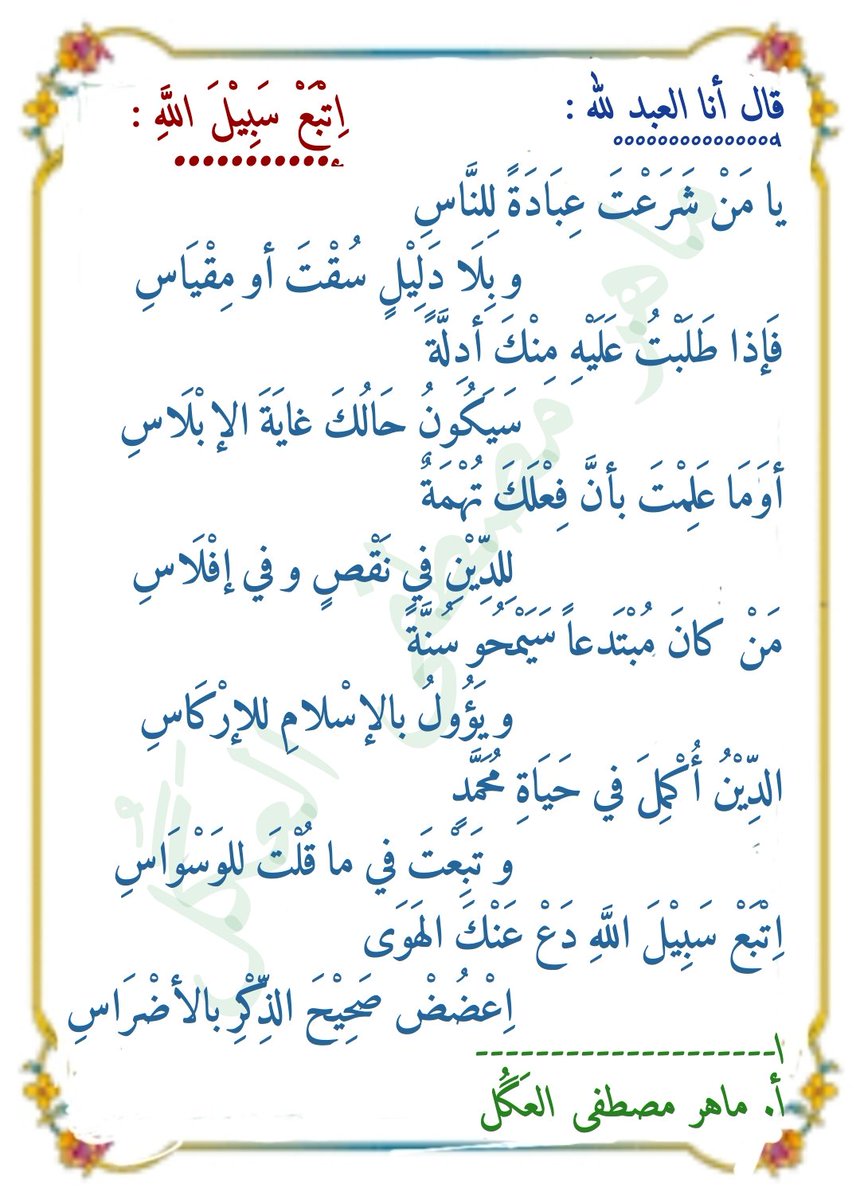 قال أنا العبد لله :
اِتْبَعْ سَبِيْلَ اللَّهِ :
يا مَنْ شَرَعْتَ عِبَادَةً لِلنَّاسِ
و بِلَا دَلِيْلٍ سُقْتَ أو مِقْيَاسِ
فَإذا طَلَبْتُ عَلَيْهِ مِنْكَ أدِلَّةً
سَيَكُونُ حَالُكَ غايَةَ الإبْلَاسِ
أوَمَا عَلِمْتَ بأنَّ فِعْلَكَ تُهْمَةٌ
لِلدِّيْنِ فِي نَقْصٍ و في إفْلَاسِ
مَنْ كانَ مُبْتَدعاً سَيَمْحُو سُنَّةً
و يَؤُولُ بالإسْلامِ للإرْكَاسِ
الدِّيْنُ أُكْمِلَ في حَيَاةِ مُحَمَّدٍ
و تَبِعْتَ في ما قُلْتَ للوَسْوَاسِ
اِتْبَعْ سَبِيْلَ اللَّهِ دَعْ عَنْكَ الهَوَى
اِعْضُضْ صَحِيْحَ الذِّكْرِ بالأضْرَاسِ
أ. ماهر مصطفى العَگُل
ماهر مصطفى العَگُل